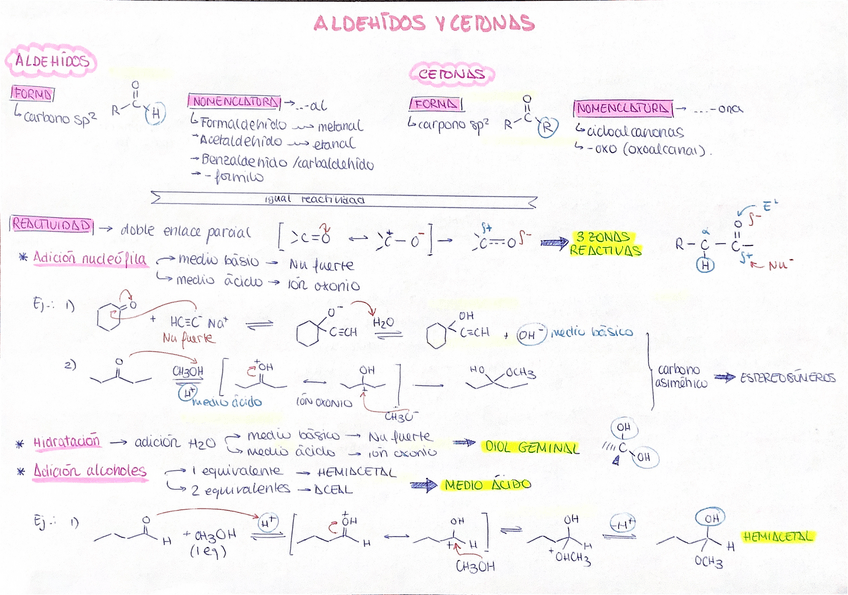 ALDEHÍDOS Y CETONAS
ALDEHÍDOS
CETONAS
FORMA
↳ carbono sp²
R C O H
NOMENCLATURA → ...-al
↳ Formaldehído ⟿ metanal
→ Acetaldehído ⟿ etanal
→ Benzaldehído /carbaldehído
→ -formilo
FORMA
↳ carpono sp²
R C O R
NOMENCLATURA → ....-ona
↳ cicloalcanonas
↳ -oxo (oxoalcanal).
igual reactividad
REACTIVIDAD → doble enlace parcial [ >C=O ↔ >C⁺-O⁻ ] → >C=O δ+ δ- ⇒ 3 ZONAS REACTIVAS
R-C-C- α H O δ- E⁺ δ+ Nu⁻
* Adición nucleófila → medio básio → Nu fuerte
↳ medio áciclo → ión oxonio
Ej.: 1) O + HC≡C⁻ Na⁺ ⇌ O⁻ C≡CH H₂O ⇌ OH C≡CH + OH⁻ medio básico
Nu fuerte
2) O CH3OH H⁺ [ ⁺OH ↔ OH + ] → HO OCH3
medio ácido IÓN OXONIO CH3O⁻
carbono asimético ⇒ ESTEREOISÓMEROS
* Hidratación → adición H2O → medio básico → Nu fuerte ⇒ DIOL GEMINAL
↳ medio áciclo → ión oxonio
OH C OH
* Adición alcoholes → 1 equivalente → HEMIACETAL
↳ 2 equivalentes → ACEAL ⇒ MEDIO ÁCIDO
Ej.: 1) O H + CH3OH (1eq) H⁺ ⇌ [ ⁺OH H ↔ OH + H ] ⇌ OH H ⁺OHCH3 -H⁺ ⇌ OH H OCH3 HEMIACETAL
CH3OH